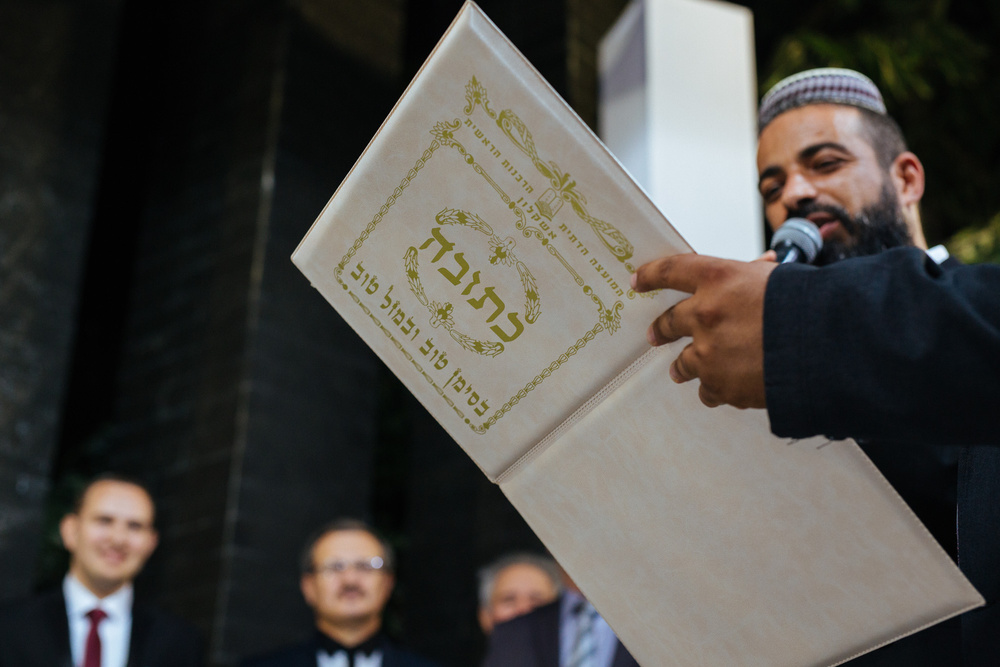 המועצה הדתית הרבנות הראשית
אשקלון
כתובה
בסימן טוב ובמזל טוב